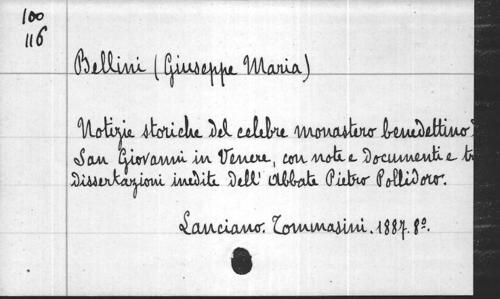 100
116
Bellini (Giuseppe Maria)
Notizie storiche del celebre monastero benedettino
San Giovanni in Venere, con note e documenti e
dissertazioni inedite dell' Abbate Pietro Pollidoro.
Lanciano. Tommasini. 1887. 8º.